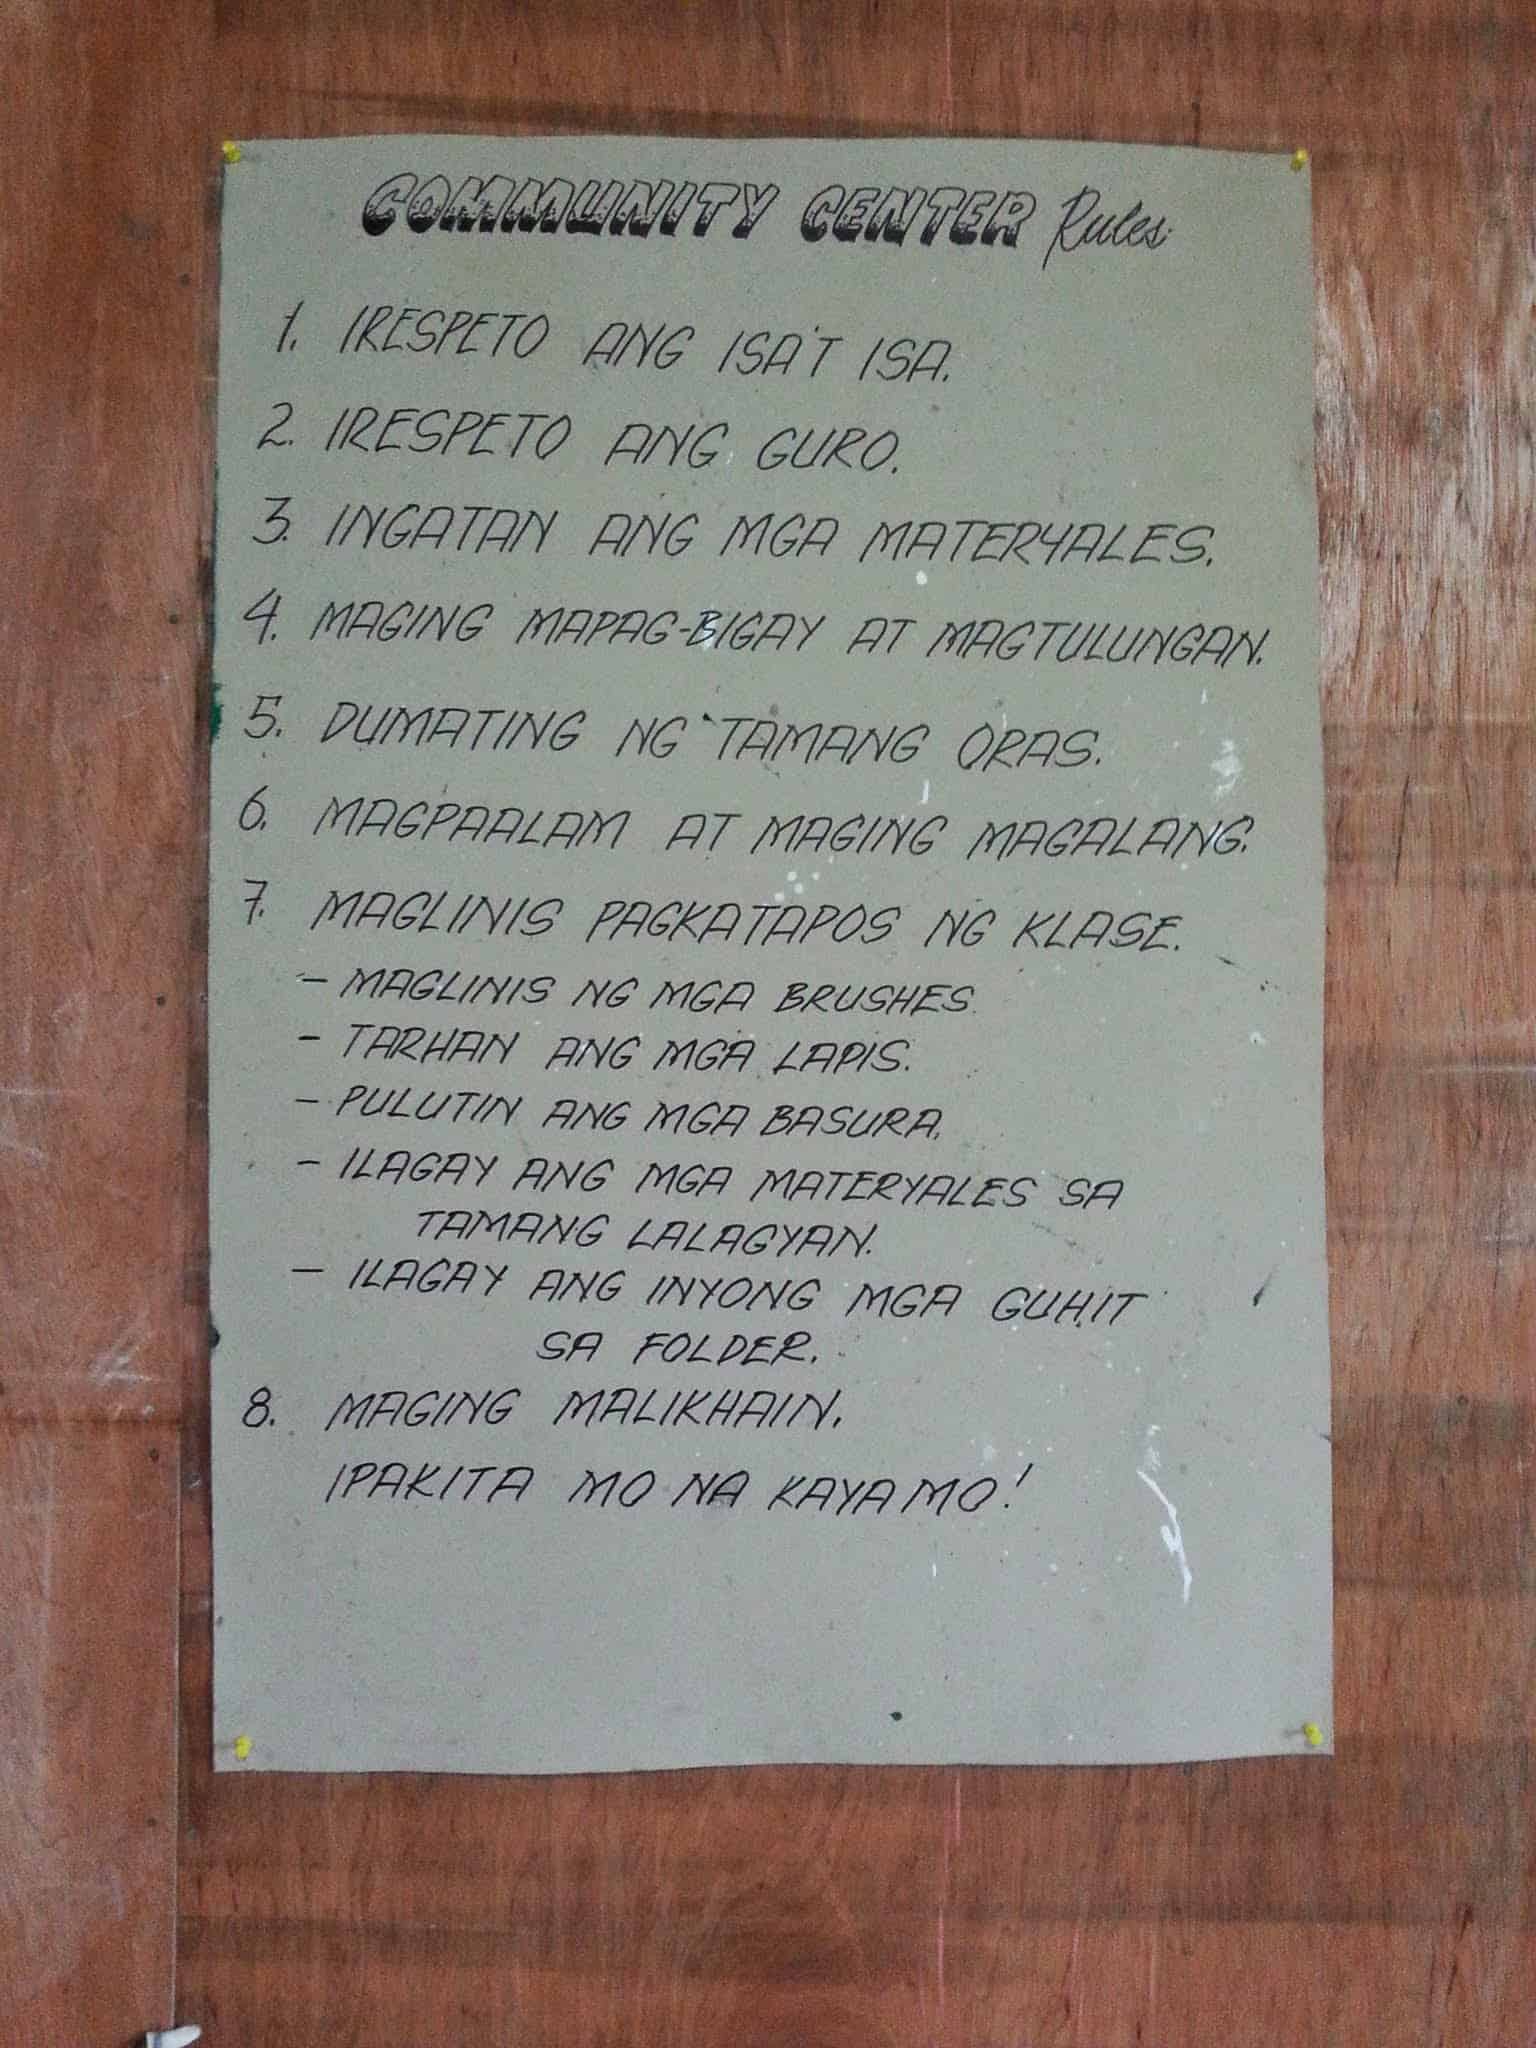 COMMUNITY CENTER Rules
1. IRESPETO ANG ISA'T ISA.
2. IRESPETO ANG GURO.
3. INGATAN ANG MGA MATERYALES.
4. MAGING MAPAG-BIGAY AT MAGTULUNGAN.
5. DUMATING NG TAMANG ORAS.
6. MAGPAALAM AT MAGING MAGALANG.
7. MAGLINIS PAGKATAPOS NG KLASE.
- MAGLINIS NG MGA BRUSHES.
- TARHAN ANG MGA LAPIS.
- PULUTIN ANG MGA BASURA.
- ILAGAY ANG MGA MATERYALES SA
TAMANG LALAGYAN.
- ILAGAY ANG INYONG MGA GUHIT
SA FOLDER.
8. MAGING MALIKHAIN.
IPAKITA MO NA KAYA MO!